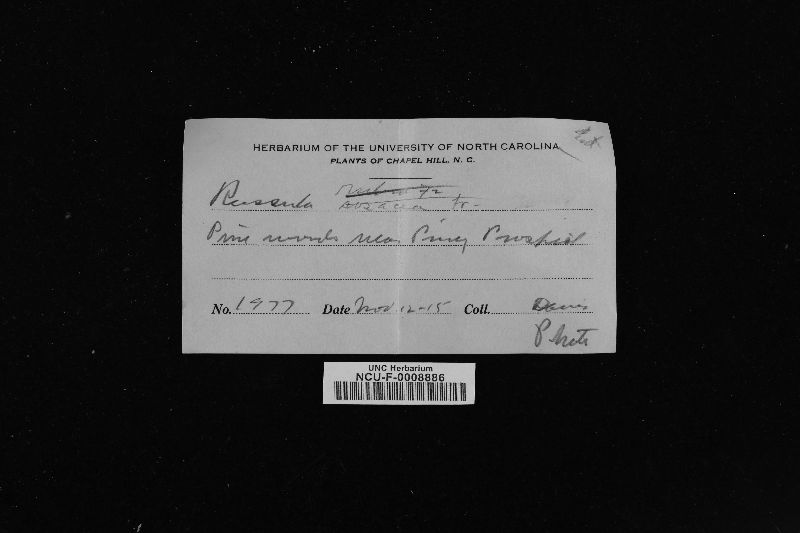 HERBARIUM OF THE UNIVERSITY OF NORTH CAROLINA
PLANTS OF CHAPEL HILL, N. C.
Russula Fr-
Pine woods near Piney Prospect
No. 1977 Date Nov. 12-15 Coll. Davis
Photo
UNC Herbarium
NCU-F-0008886